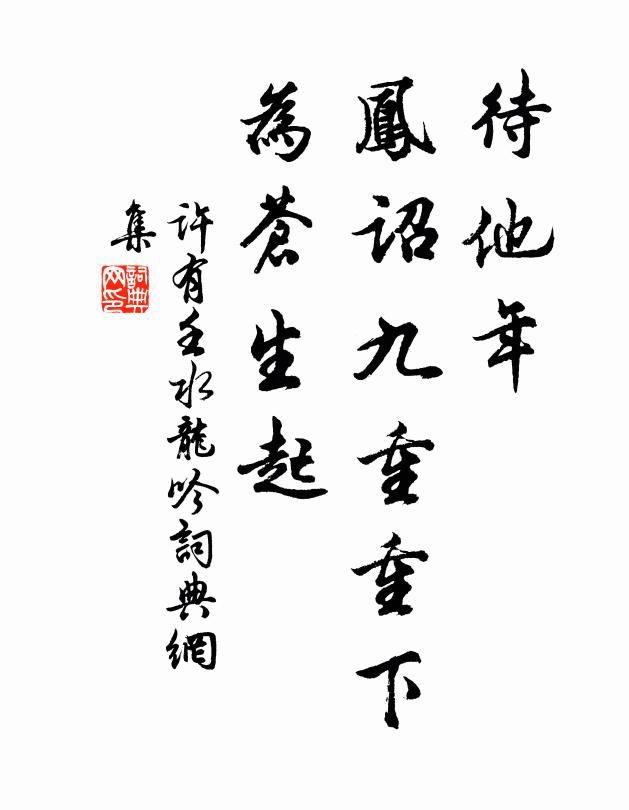 待他年
鳳詔九重重下
為蒼生起
許有壬水龍吟詞典網
集
詞典
网印